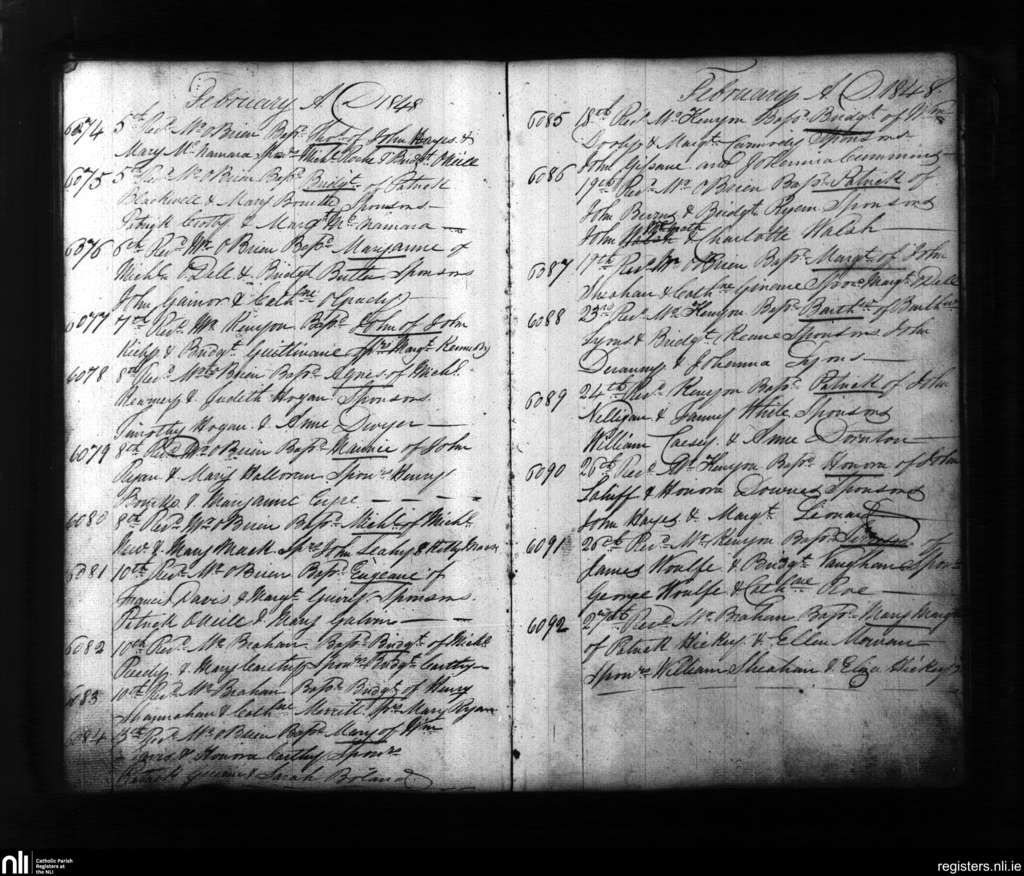 February A D 1848
6074 5th Revd Mr O Brien Bapd Thos of John Hayes &
Mary McNamara Spors Michl Roche & Bridgt O Neill
6075 5th Revd Mr O Brien Bapd Bridgt of Patrick
Blackwell & Mary Bourke Sponsors
Patrick Crotty & Margt McNamara
6076 6th Revd Mr O Brien Bapd Maryanne of
Michl Odell & Bridgt Butler Sponsors
John Gainor & Cathne OGrady
6077 7th Revd Mr Kenyon Bapd John of John
& Bridgt Sprs Margt Kennedy
6078 8th Revd Mr O Brien Bapd Agnes of Michl
Kearney & Judith Hogan Sponsors
Timothy Hogan & Anne Dwyer
6079 8th Revd Mr O Brien Bapd Maurice of John
Ryan & Mary Halloran Sponrs Henry
& Maryanne
6080 8th Revd Mr O Brien Bapd Michl of Michl
& Mary Mack Sprs John Leahy & Kitty
6081 10th Revd Mr O Brien Bapd Eugeane of
Francis Davis & Margt Sponsors
Patrick O Neill & Mary Galvin
6082 10th Revd Mr Brahan Bapd Bridgt of Michl
Reedy & Mary Carthy Sponrs Bridgt Carthy
6083 10th Revd Mr Brahan Bapd Bridgt of Henry
Shaynahan & Cathne Merritt Sprs Mary Ryan
6084 Revd Mr O Brien Bapd Mary of Wm
& Honora Carthy Sponrs
Patrick & Sarah Boland
February A D 1848
6085 18th Revd Mr Kenyon Bapd Bridgt of Wm
Dooly & Margt Carmody Sponsors
John Gissane and Johanna Cummins
6086 19th Revd Mr O Brien Bapd Patrick of
John Burns & Bridgt Ryan Sponsors
John & Charlotte Walsh
6087 19th Revd Mr O Brien Bapd Margt of John
Sheahan & Cathne Sponr Margt Odell
6088 23rd Revd Mr Kenyon Bapd Barthw of Barthw
Lyons & Bridgt Keane Sponsors John
& Johanna Lyons
6089 24th Revd Kenyon Bapd Patrick of John
Nelligan & Fanny White Sponsors
William Casey & Anne Dornton
6090 26th Revd Mr Kenyon Bapd Honora of John
Lahiff & Honora Downes Sponsors
John Hayes & Margt Leonard
6091 26th Revd Mr Kenyon Bapd of
James Woulfe & Bridgt Vaughan Spons
George Woulfe & Cathne Roe
6092 27th Revd Mr Brahan Bapd Mary Margt
of Patrick Hickey & Ellen
Sponrs William Sheahan & Eliza Hickey
nli Catholic Parish
Registers at
the NLI
registers.nli.ie